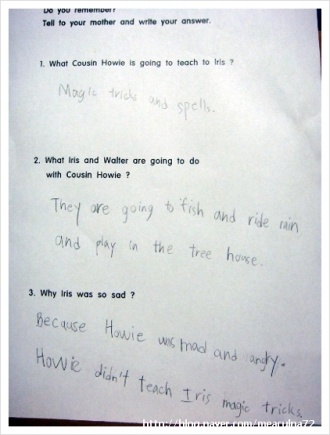 Do you remember?
Tell to your mother and write your answer.
1. What Cousin Howie is going to teach to Iris ?
Magic tricks and spells.
2. What Iris and Walter are going to do
with Cousin Howie ?
They are going to fish and ride rain
and play in the tree house.
3. Why Iris was so sad ?
Because Howie was mad and angry.
Howie didn't teach Iris magic tricks.